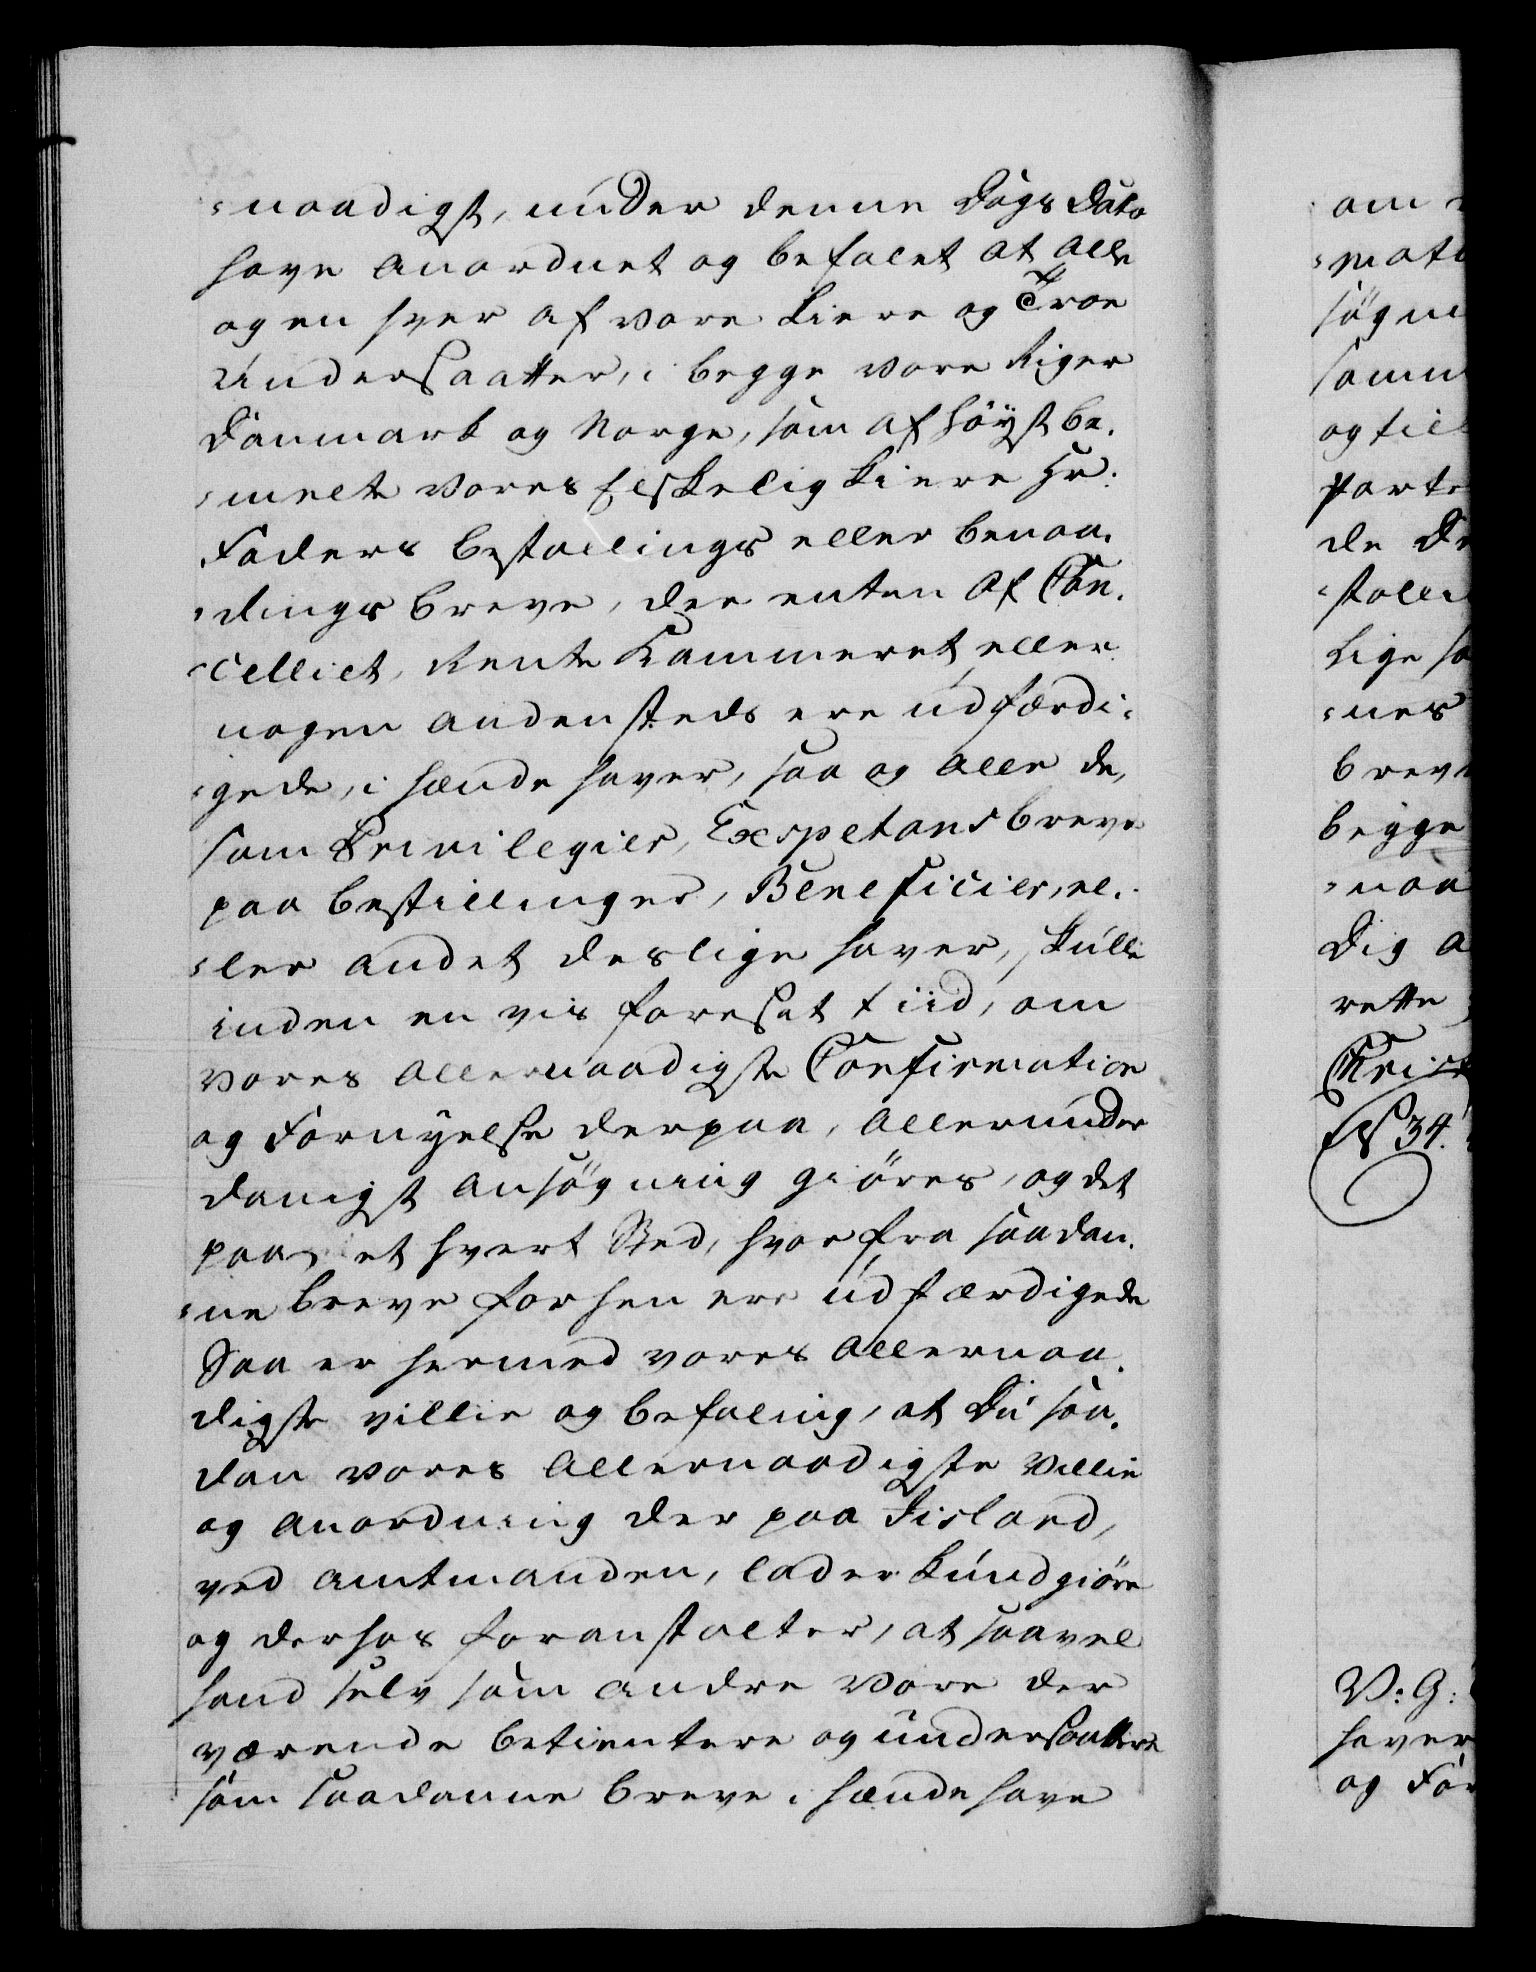 :naadigst, under denne Dags Dato
have anordnet og befalet at alle
og en hver af vore kiere og Troe
Undersaatter, i begge vore Riger
Danmark og Norge, som af høyst be.
:melte vores Elskelig kiere Hr:
Faders bestallings eller benaa.
:dings breve, der enten af Can.
:celliet, Rente Kammeret, eller
nogen andensteds ere udfærdi:
:gede, i hænde haver, saa og alle de,
som Privilegier, Exspetans breve
paa bestillinger, Beneficier, el.
:ler andet deslige haver, skulle
inden en vis foresat tiid, om
vores allernaadigste Confirmation
og Fornyelse derpaa, allerunder
danigst ansøgning giøres, og det
paa et hvert Sted, hvor fra saadan.
:ne breve forhen ere udfærdigede
Saa er hermed vores allernaa.
digste villie og befaling, at Du saa.
dan vores allernaadigste Villie
og anordning der paa Iisland,
ved amtmanden, lader kundgiøre
og derhos foranstalter, at saavel
hand selv som andre vore der
værende betientere og undersaattere
som saadanne breve i hænde have
om
:mati
søgni
samm
og till
parte
de
:stalli
Lige sa
:nes
breve
begge
:naa
Dig a
rette
Christ
34.
V: G:
haver
og For